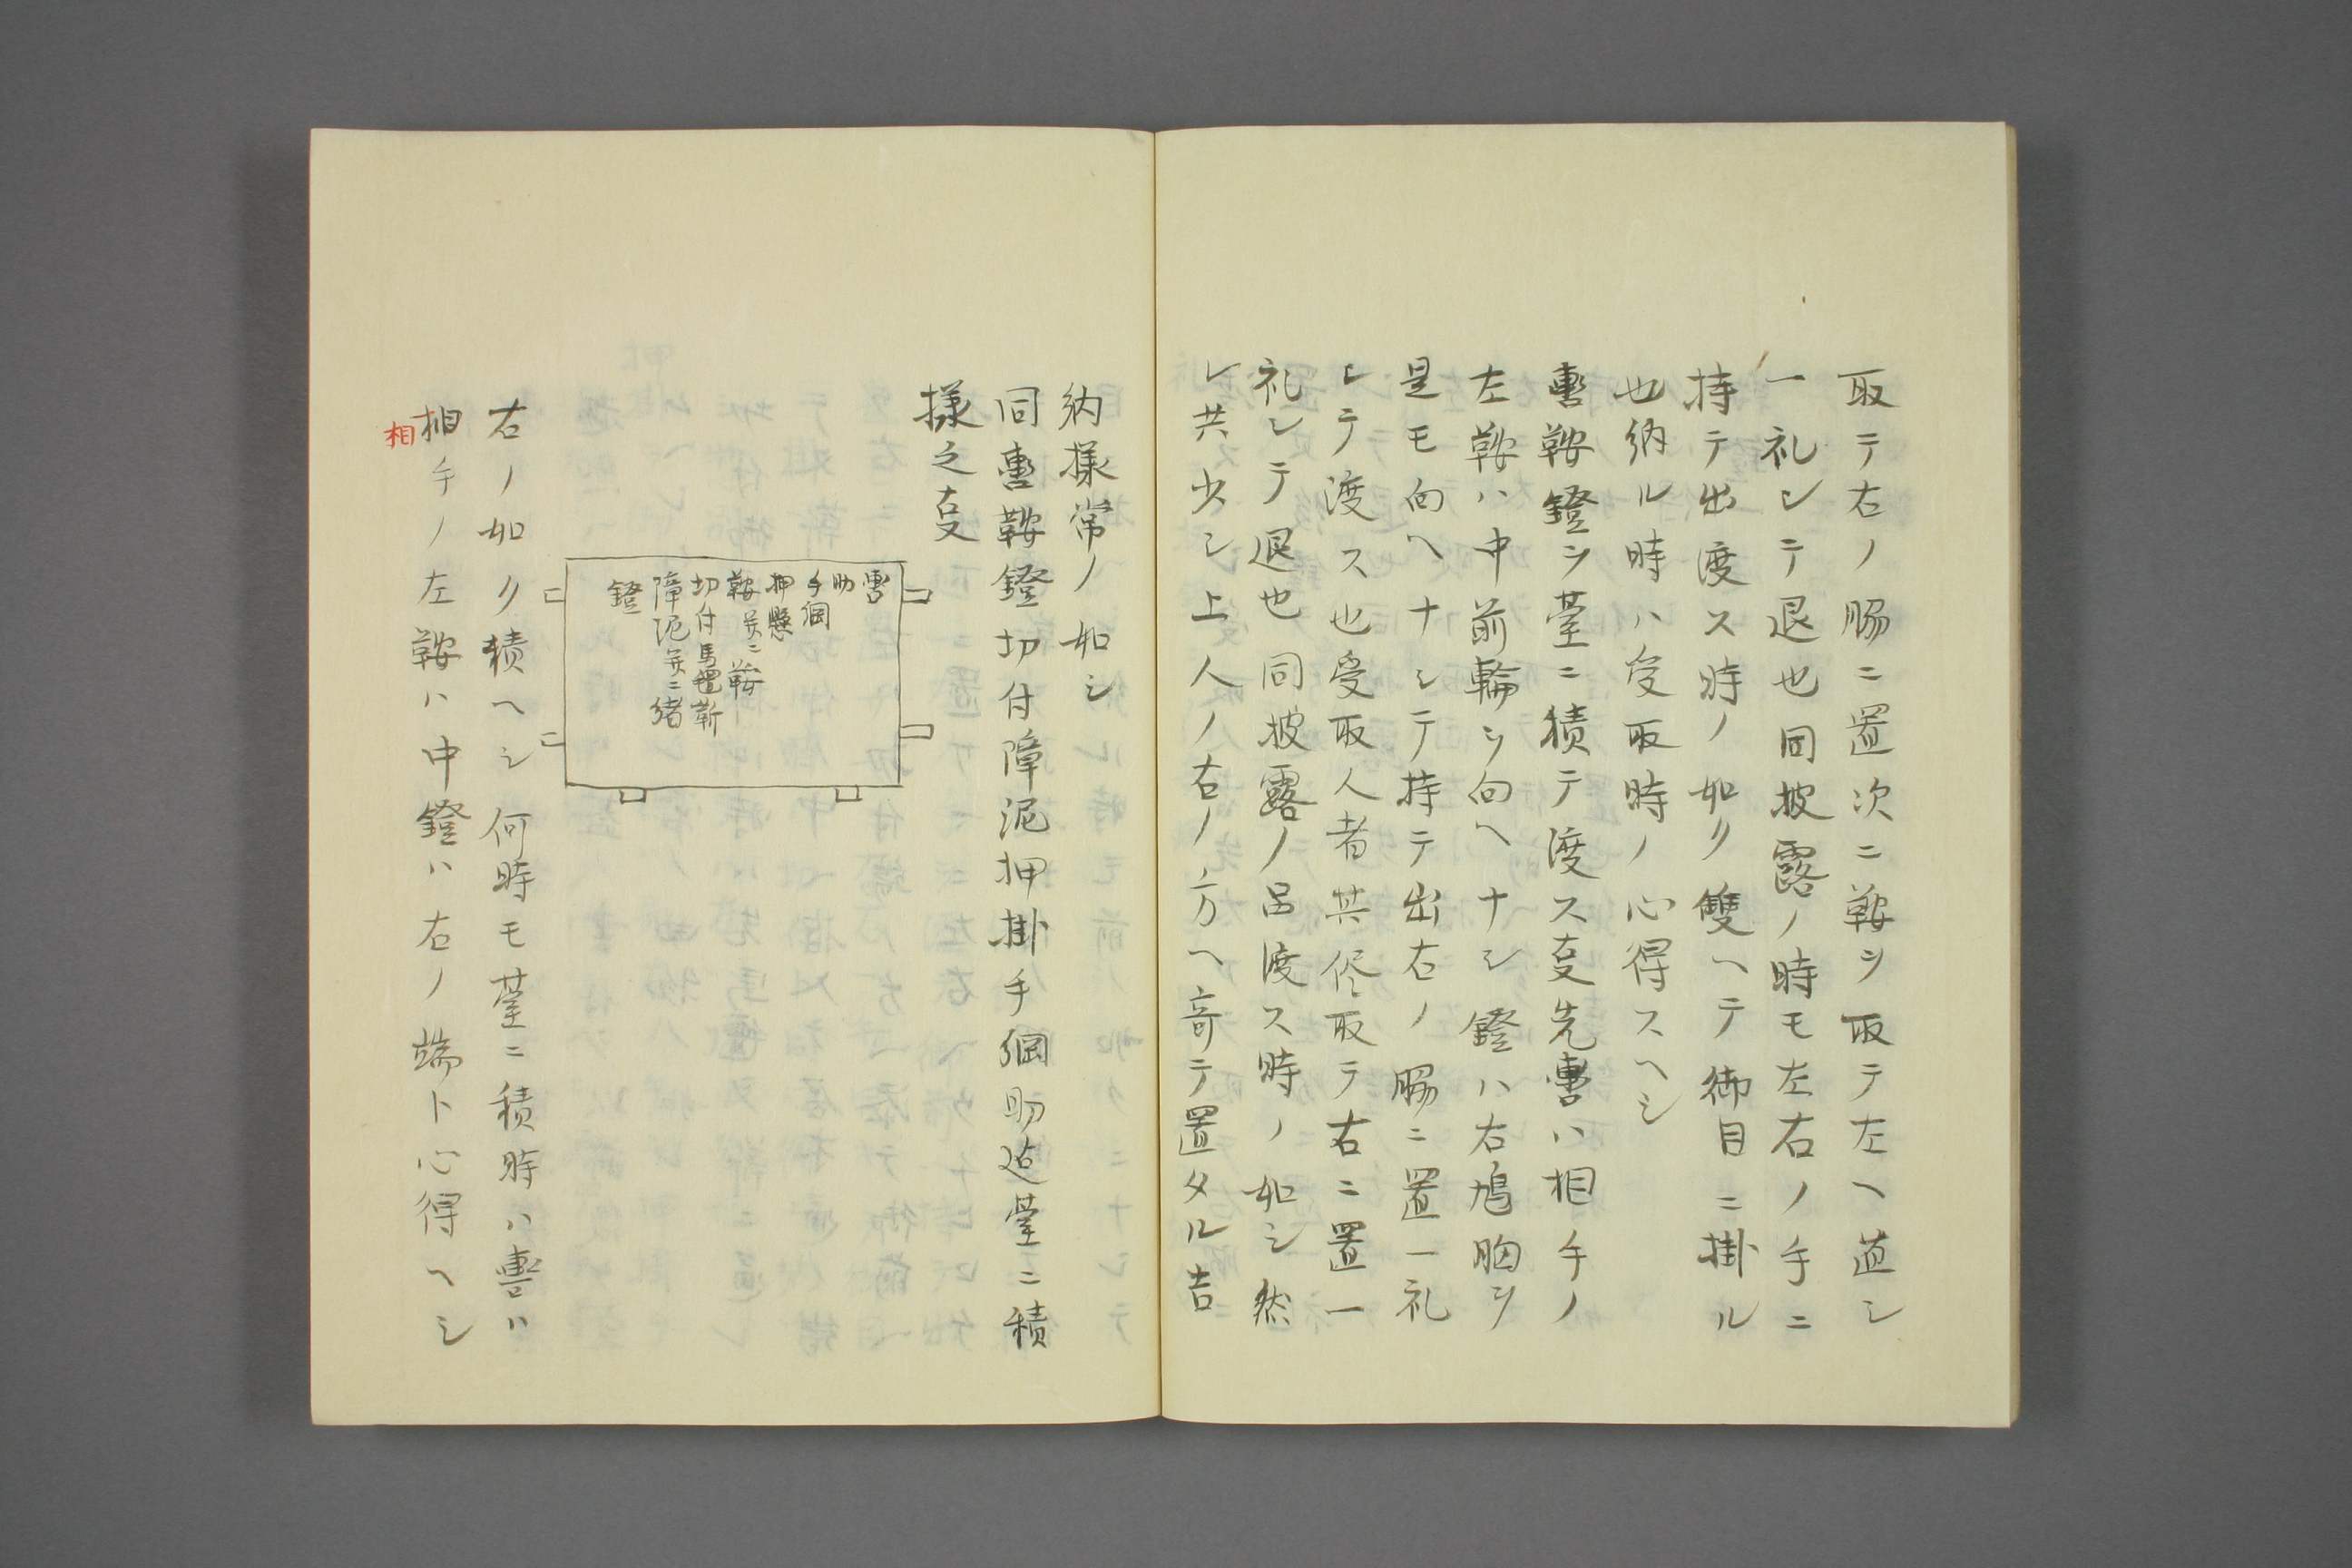 取テ右ノ脇ニ置次ニ鞍ヲ取テ左ヘ直シ
一礼シテ退也同披露ノ時モ左右ノ手ニ
持テ出渡ス時ノ如ク雙ヘテ御目ニ掛ル
也納ル時ハ受取時ノ心得スヘシ
轡鞍鐙ヲ薹ニ積テ渡ス叓先轡ハ相手ノ
左鞍ハ中前輪ヲ向ヘナシ鐙ハ右鳩胸ヲ
是モ向ヘナシテ持テ出右ノ脇ニ置一礼
シテ渡ス也受取人者其侭取テ右ニ置一
礼シテ退也同披露ノ呂渡ス時ノ如シ然
レ共少シ上人ノ右ノ方ヘ寄テ置タル吉
納様常ノ如シ
同轡鞍鐙切付障泥押掛手綱
迠薹ニ積
様之叓
轡
手綱
押懸
鞍並ニ鞍
切付馬氊
障泥並ニ緒
鐙
右ノ如ク積ヘシ何時モ薹ニ積時ハ轡ハ
相手ノ左鞍ハ中鐙ハ右ノ端ト心得ヘシ
相